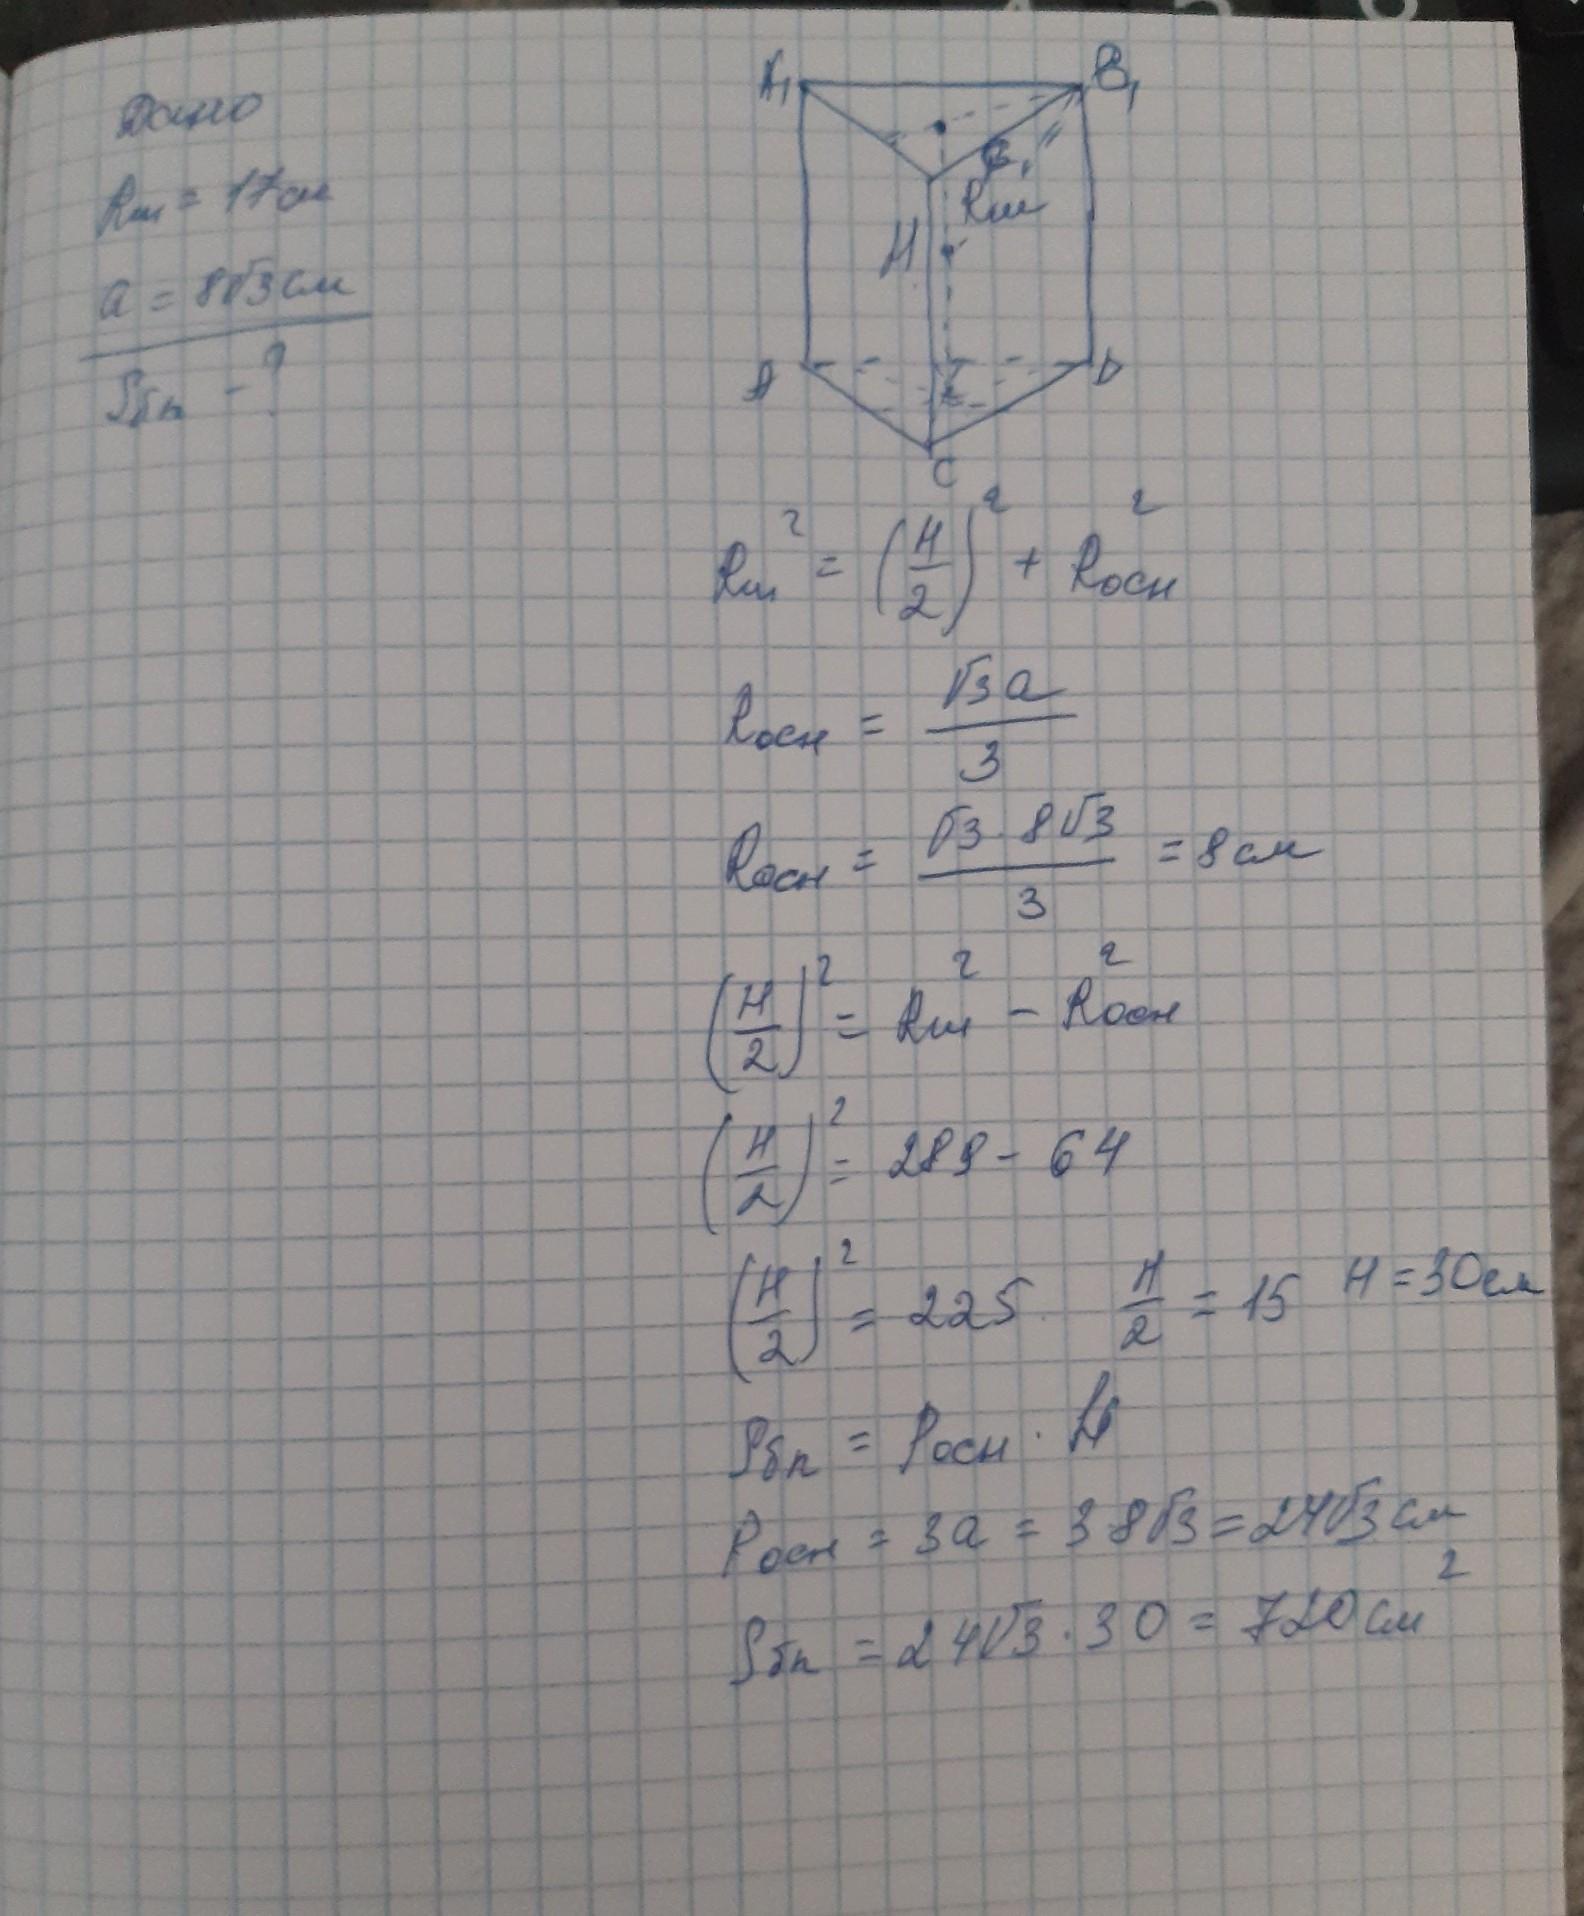 Дано
Rш = 17 см
a = 8√3 см
Sбп - ?
A₁ B₁
C₁
Rш
H
A B
C
Rш² = (H/2)² + Rосн²
Rосн = √3a/3
Rосн = √3·8√3/3 = 8 см
(H/2)² = Rш² - Rосн²
(H/2)² = 289 - 64
(H/2)² = 225 H/2 = 15 H = 30 см
Sбп = Pосн · H
Pосн = 3a = 3 8√3 = 24√3 см
Sбп = 24√3 · 30 = 720 см²